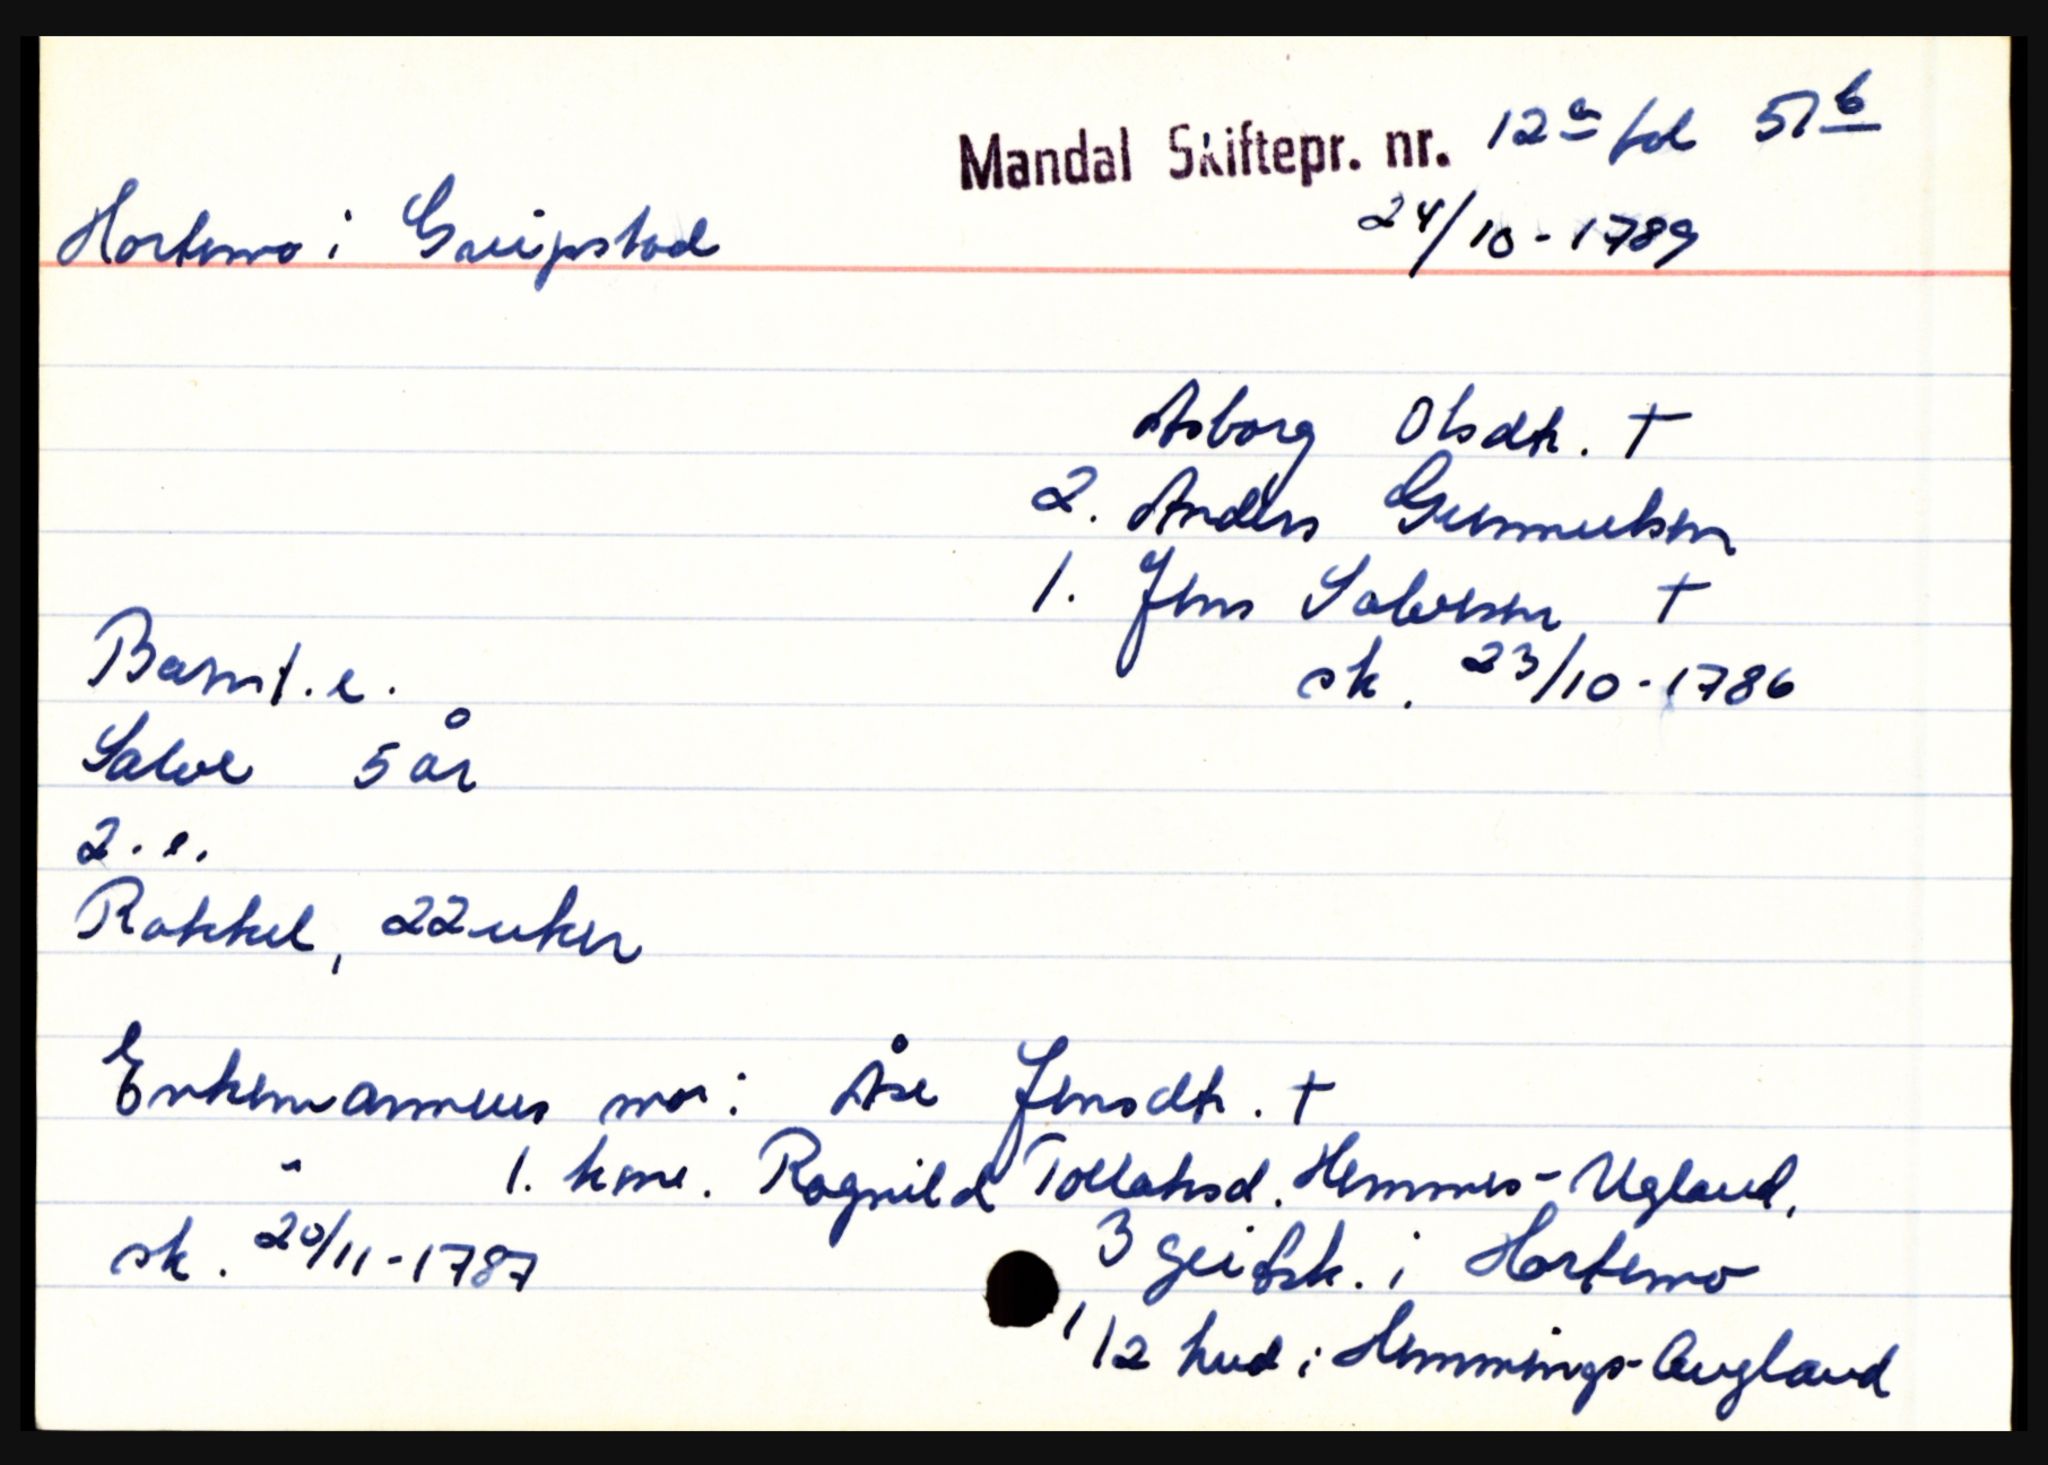 Mandal Skiftepr. nr. 12a fol 57b
24/10-1789
Hortemo i Greipstad
Asborg Olsdtr. †
2. Anders Gunnulsen
1. Jens Salvesen †
sk. 23/10-1786
Barn 1. e.
Salve 5 år
2. e.
Rakkel, 22 uker
Enkemannens mor: Åse Jensdtr. †
" 1. kone. Ragnild Tollaksd. Hemmes-Ugland,
sk. 20/11-1787
3 geitsk. i Hortemo
1/2 hud i Hemmings-Augland